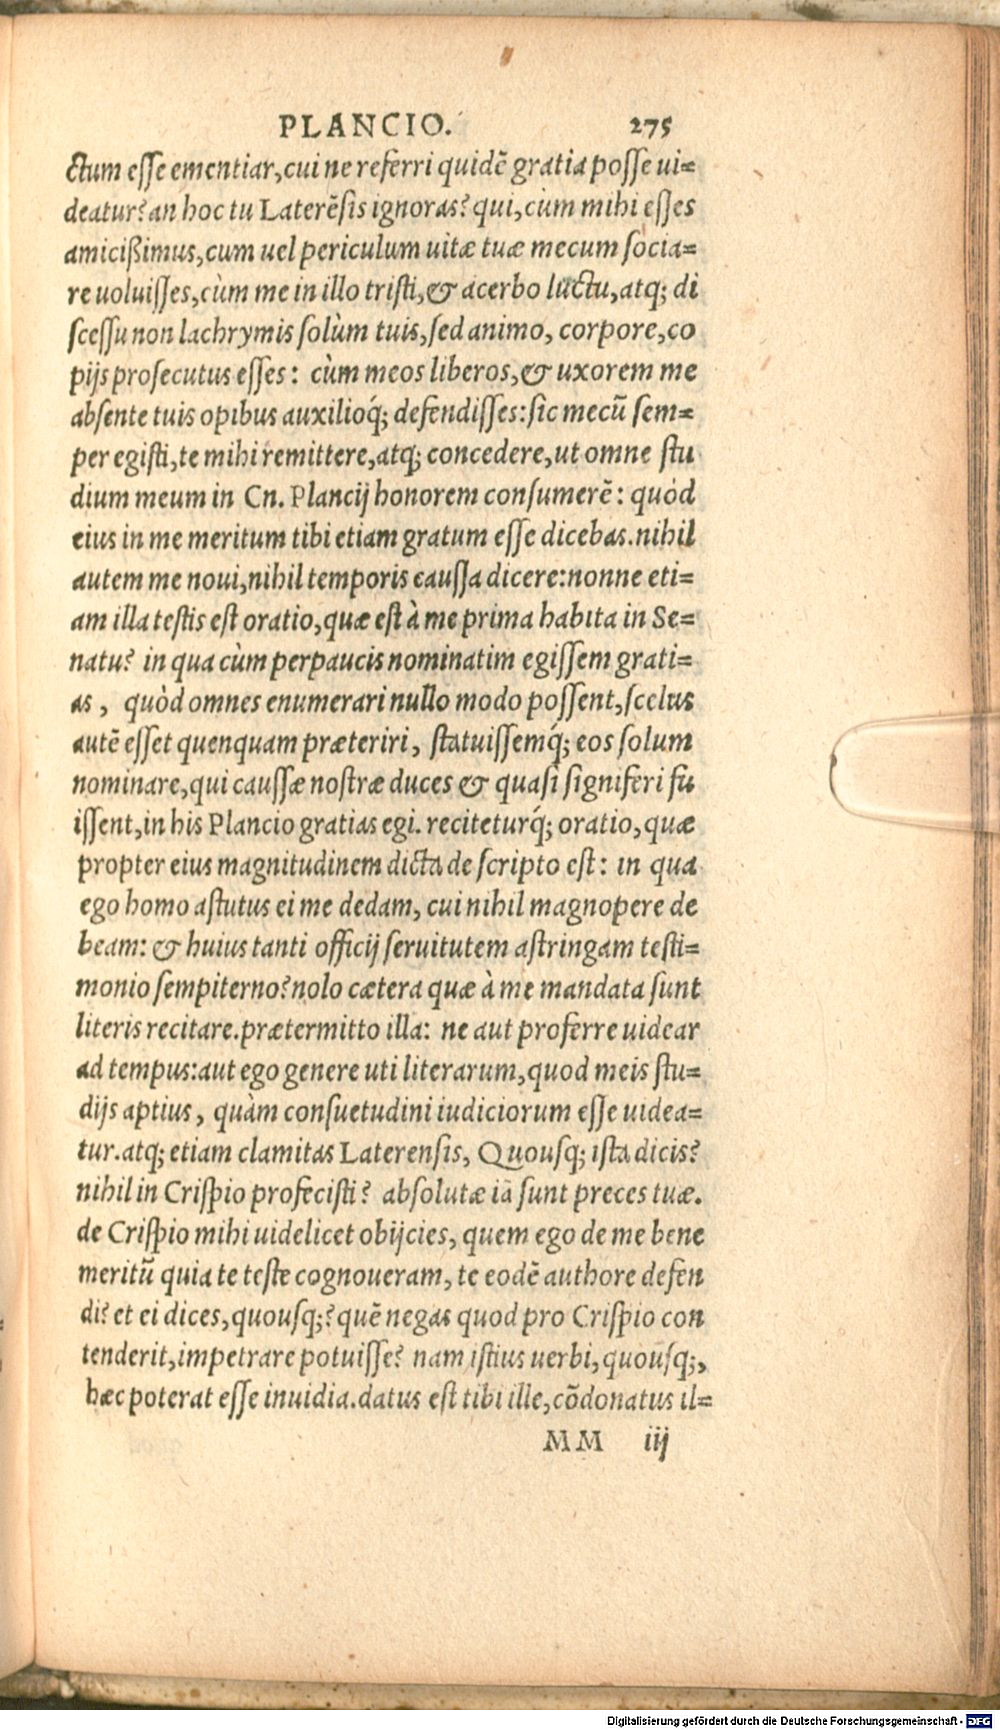 PLANCIO. 275
ctum esse ementiar,cui ne referri quidẽ gratia posse vi=
deatur? an hoc tu Laterẽsis ignoras? qui,cùm mihi esses
amicißimus,cum uel periculum uitæ tuæ mecum socia=
re uoluisses,cùm me in illo tristi,& acerbo luctu,atq; di
scessu non lachrymis solùm tuis,sed animo, corpore,co
pijs prosecutus esses: cùm meos liberos,& uxorem me
absente tuis opibus auxilioq́; defendisses:sic mecũ sem=
per egisti,te mihi remittere,atq; concedere,ut omne stu
dium meum in Cn. Plancij honorem consumerẽ: quòd
eius in me meritum tibi etiam gratum esse dicebas.nihil
autem me noui,nihil temporis caussa dicere:nonne eti=
am illa testis est oratio,quæ est à me prima habita in Se=
natu? in qua cùm perpaucis nominatim egissem grati=
as, quòd omnes enumerari nullo modo possent,scelus
autẽ esset quenquam præteriri, statuissemq́; eos solum
nominare,qui caussæ nostræ duces & quasi signiferi fu
issent,in his Plancio gratias egi. reciteturq́; oratio,quæ
propter eius magnitudinem dicta de scripto est: in qua
ego homo astutus ei me dedam, cui nihil magnopere de
beam: & huius tanti officij seruitutem astringam testi=
monio sempiterno?nolo cætera quæ à me mandata sunt
literis recitare.prætermitto illa: ne aut proferre uidear
ad tempus:aut ego genere uti literarum,quod meis stu=
dijs aptius, quàm consuetudini iudiciorum esse uidea=
tur.atq; etiam clamitas Laterensis, Quousq; ista dicis?
nihil in Crispio profecisti? absolutæ iã sunt preces tuæ.
de Crispio mihi uidelicet obijcies, quem ego de me bene
meritũ quia te teste cognoueram, te eodẽ authore defen
di? et ei dices,quousq;? quẽ negas quod pro Crispio con
tenderit,impetrare potuisse? nam istius uerbi,quousq;,
hæc poterat esse inuidia.datus est tibi ille,cõdonatus il=
MM iij
Digitalisierung gefördert durch die Deutsche Forschungsgemeinschaft - DFG